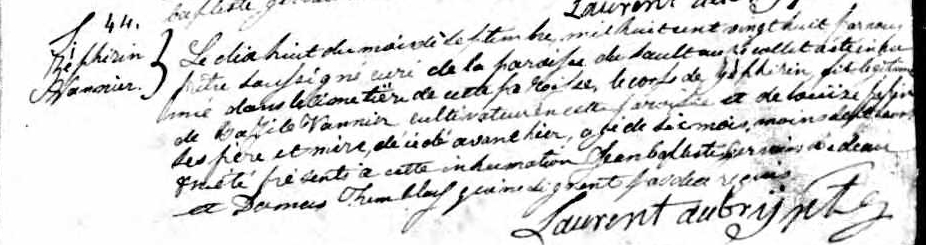 baptiste
Laurent
S. 44.
Zéphirin
Vannier.
Le dix huit du mois de septembre, mil huit cent vingt huit par nous
prêtre soussigné curé de la paroisse du Sault au recollet a été inhu
mé dans le cimetière de cette paroisse, le corps de Zéphirin, fils légitime
de Bazile Vannier cultivateur en cette paroisse et de Louise
ses père et mère, décédé avant hier, agé de six mois, moins sept jours
ont été présents a cette inhumation Jean Baptiste bedeau
et Damas Tremblay qui ne signent pas de ce requis
Laurent aubry ptre